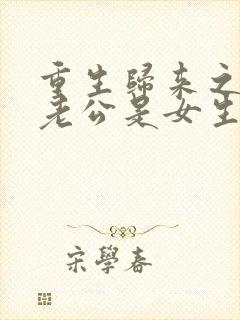 重生歸来之
老公是女生
宋學春